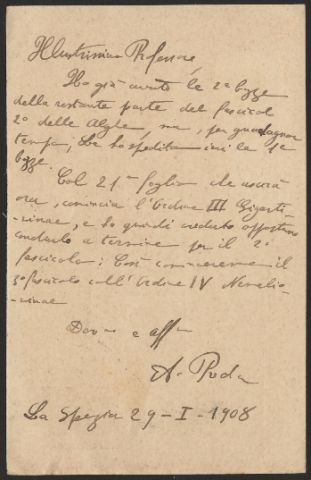 Illustrissimo Professore
Ho già avuto le 2e bozze
della restante parte del fascicol
2o delle Alghe, ma, per guadagnar
tempo, La ho spedita ieri la 1e
bozze.
Col 21mo foglio che uscirà
ora, comincia l'Ordine III Gigarti-
-ninae, e ho quindi creduto opportuno
condurlo a termine per il 2o
fascicolo: Così cominceremo il
3o fascicolo coll'Ordine IV Nemalio-
-ninae
Dev.mo e aff.mo
A. Preda
La Spezia 29-I-1908